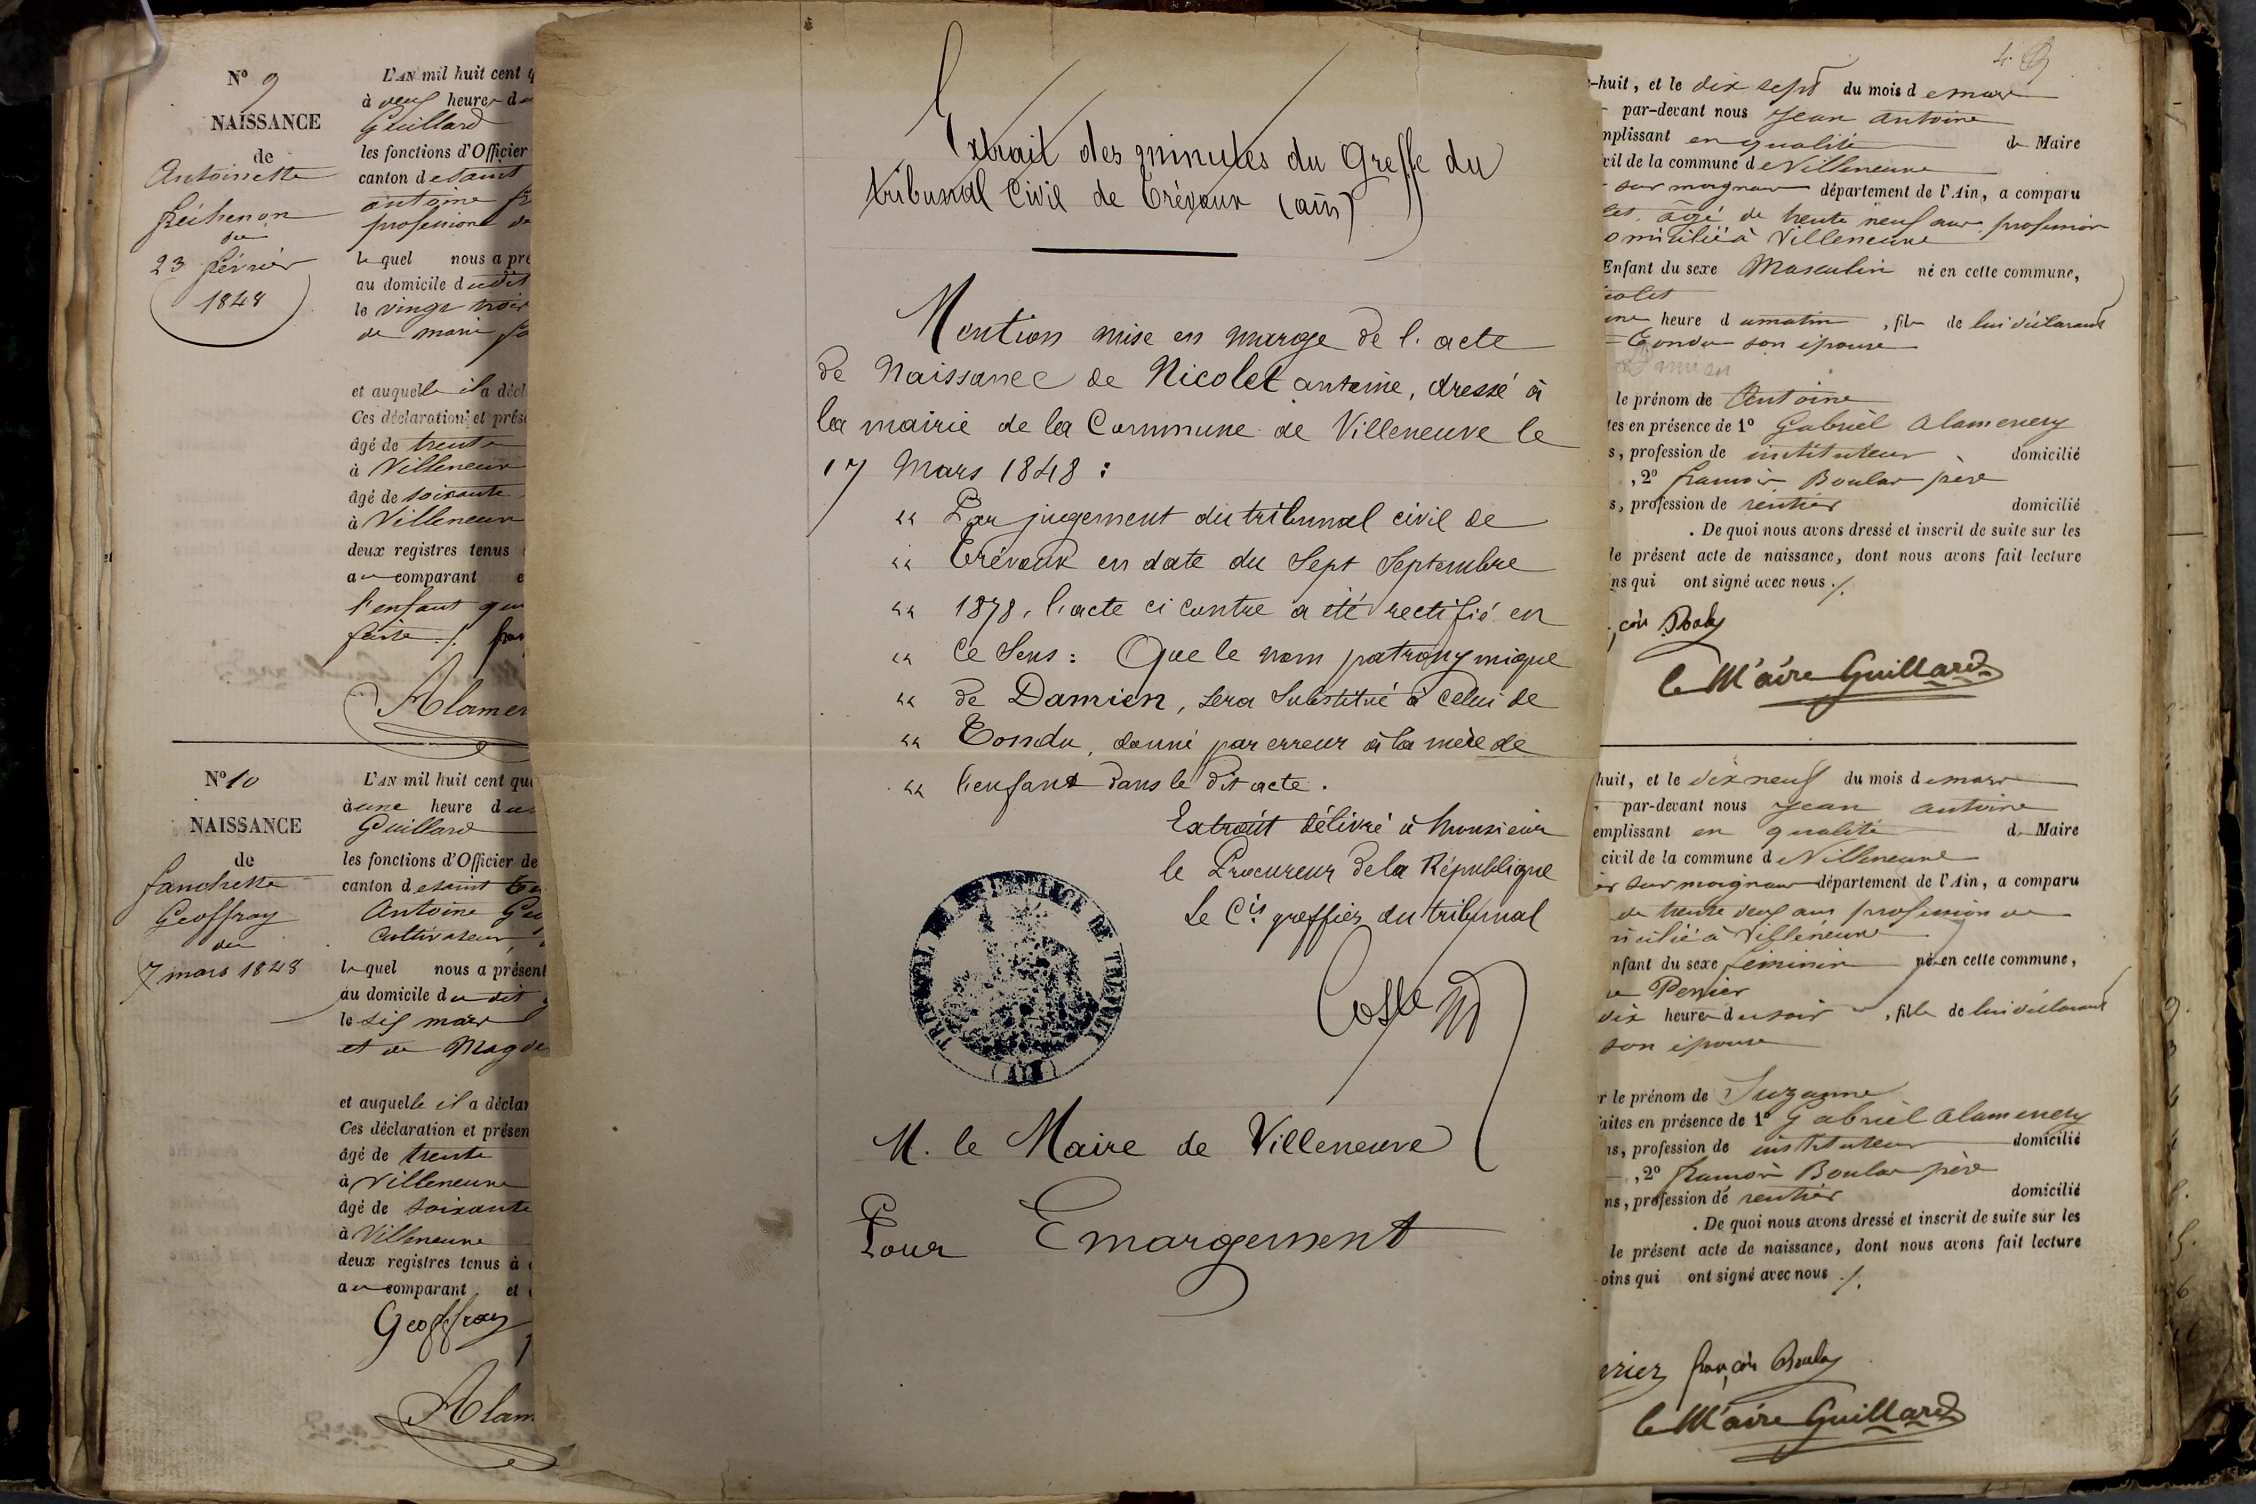 N° 9
NAISSANCE
de
Antoinette
du
23 février
1848
L'AN mil huit cent
à neuf heures du
Guillard
les fonctions d'Officier
canton de saint
antoine
profession de
lequel nous a pré
au domicile dudit
le vingt trois
de marie
et auquelle il a décl
Ces déclaration et prés
âgé de trente
à Villeneuve
âgé de soixante
à Villeneuve
deux registres tenus
au comparant e
l'enfant
faite ./.
Alamer
N° 10
NAISSANCE
de
Geoffray
du
7 mars 1848
L'AN mil huit cent qua
à une heure du
Guillard
les fonctions d'Officier de
canton de saint
Antoine
Cultivateur
lequel nous a présent
au domicile du dit
le six mars
et de Magde
et auquelle il a déclar
Ces déclaration et présen
âgé de trente
à Villeneuve
âgé de soixante
à Villeneuve
deux registres tenus à
au comparant et
Geoffray
Alam
Extrait des minutes du Greffe du
tribunal Civil de Trévoux (ain)
Mention mise en marge de l'acte
de Naissance de Nicolet antoine, dressé à
la mairie de la Commune de Villeneuve le
17 Mars 1848 :
" Par jugement du tribunal civil de
" Trévoux en date du Sept Septembre
" 1878, l'acte ci contre a été rectifié en
" ce sens : Que le nom patronymique
" de Damien, sera substitué à celui de
" Tondu, donné par erreur à la mère de
" l'enfant dans le dit acte.
Extrait délivré à Monsieur
le Procureur de la République
Le Cis greffier du tribunal
TRIBUNAL DE 1ère INSTANCE DE TRÉVOUX
(AIN)
M. le Maire de Villeneuve
Pour Emargement
-huit, et le dix sept du mois de mars
par-devant nous Jean antoine
mplissant en qualité de Maire
vil de la commune de Villeneuve
sur moignans département de l'Ain, a comparu
let, âgé de trente neuf ans, profession
omicilié à Villeneuve
Enfant du sexe Masculin né en cette commune,
icolet
une heure du matin, fils de lui déclarant
Tondu son épouse
Damien
le prénom de Antoine
tes en présence de 1° Gabriel Alamercery
s, profession de instituteur domicilié
, 2° françois Boulas père
s, profession de rentier domicilié
. De quoi nous avons dressé et inscrit de suite sur les
le présent acte de naissance, dont nous avons fait lecture
ns qui ont signé avec nous ./.
le Maire Guillard
huit, et le dix neuf du mois de mars
par-devant nous Jean antoine
emplissant en qualité de Maire
civil de la commune de Villeneuve
sur moignans département de l'Ain, a comparu
de trente deux ans profession de
micilié à Villeneuve
nfant du sexe feminin né en cette commune,
dix heures du soir, fille de lui déclarant
son épouse
r le prénom de Suzanne
aites en présence de 1° Gabriel Alamercery
ns, profession de instituteur domicilié
, 2° françois Boulas père
ns, profession de rentier domicilié
. De quoi nous avons dressé et inscrit de suite sur les
le présent acte de naissance, dont nous avons fait lecture
oins qui ont signé avec nous ./.
le Maire Guillard